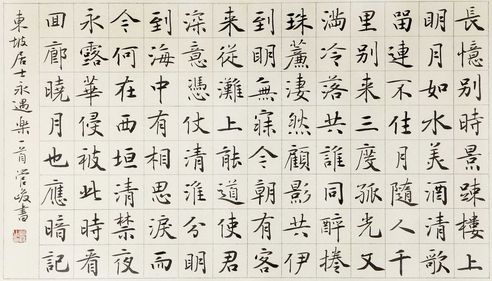 長憶别時景踈樓上
明月如水美酒清歌
畱連不住月隨人千
里别来三度孤光又
滿冷落共誰同醉捲
珠簾淒然顧影共伊
到明無寐今朝有客
来從灘上能道使君
深意憑仗清淮分明
到海中有相思淚而
今何在西垣清禁夜
永露華侵被此時看
囬廊曉月也應暗記
東坡居士永遇樂一首書